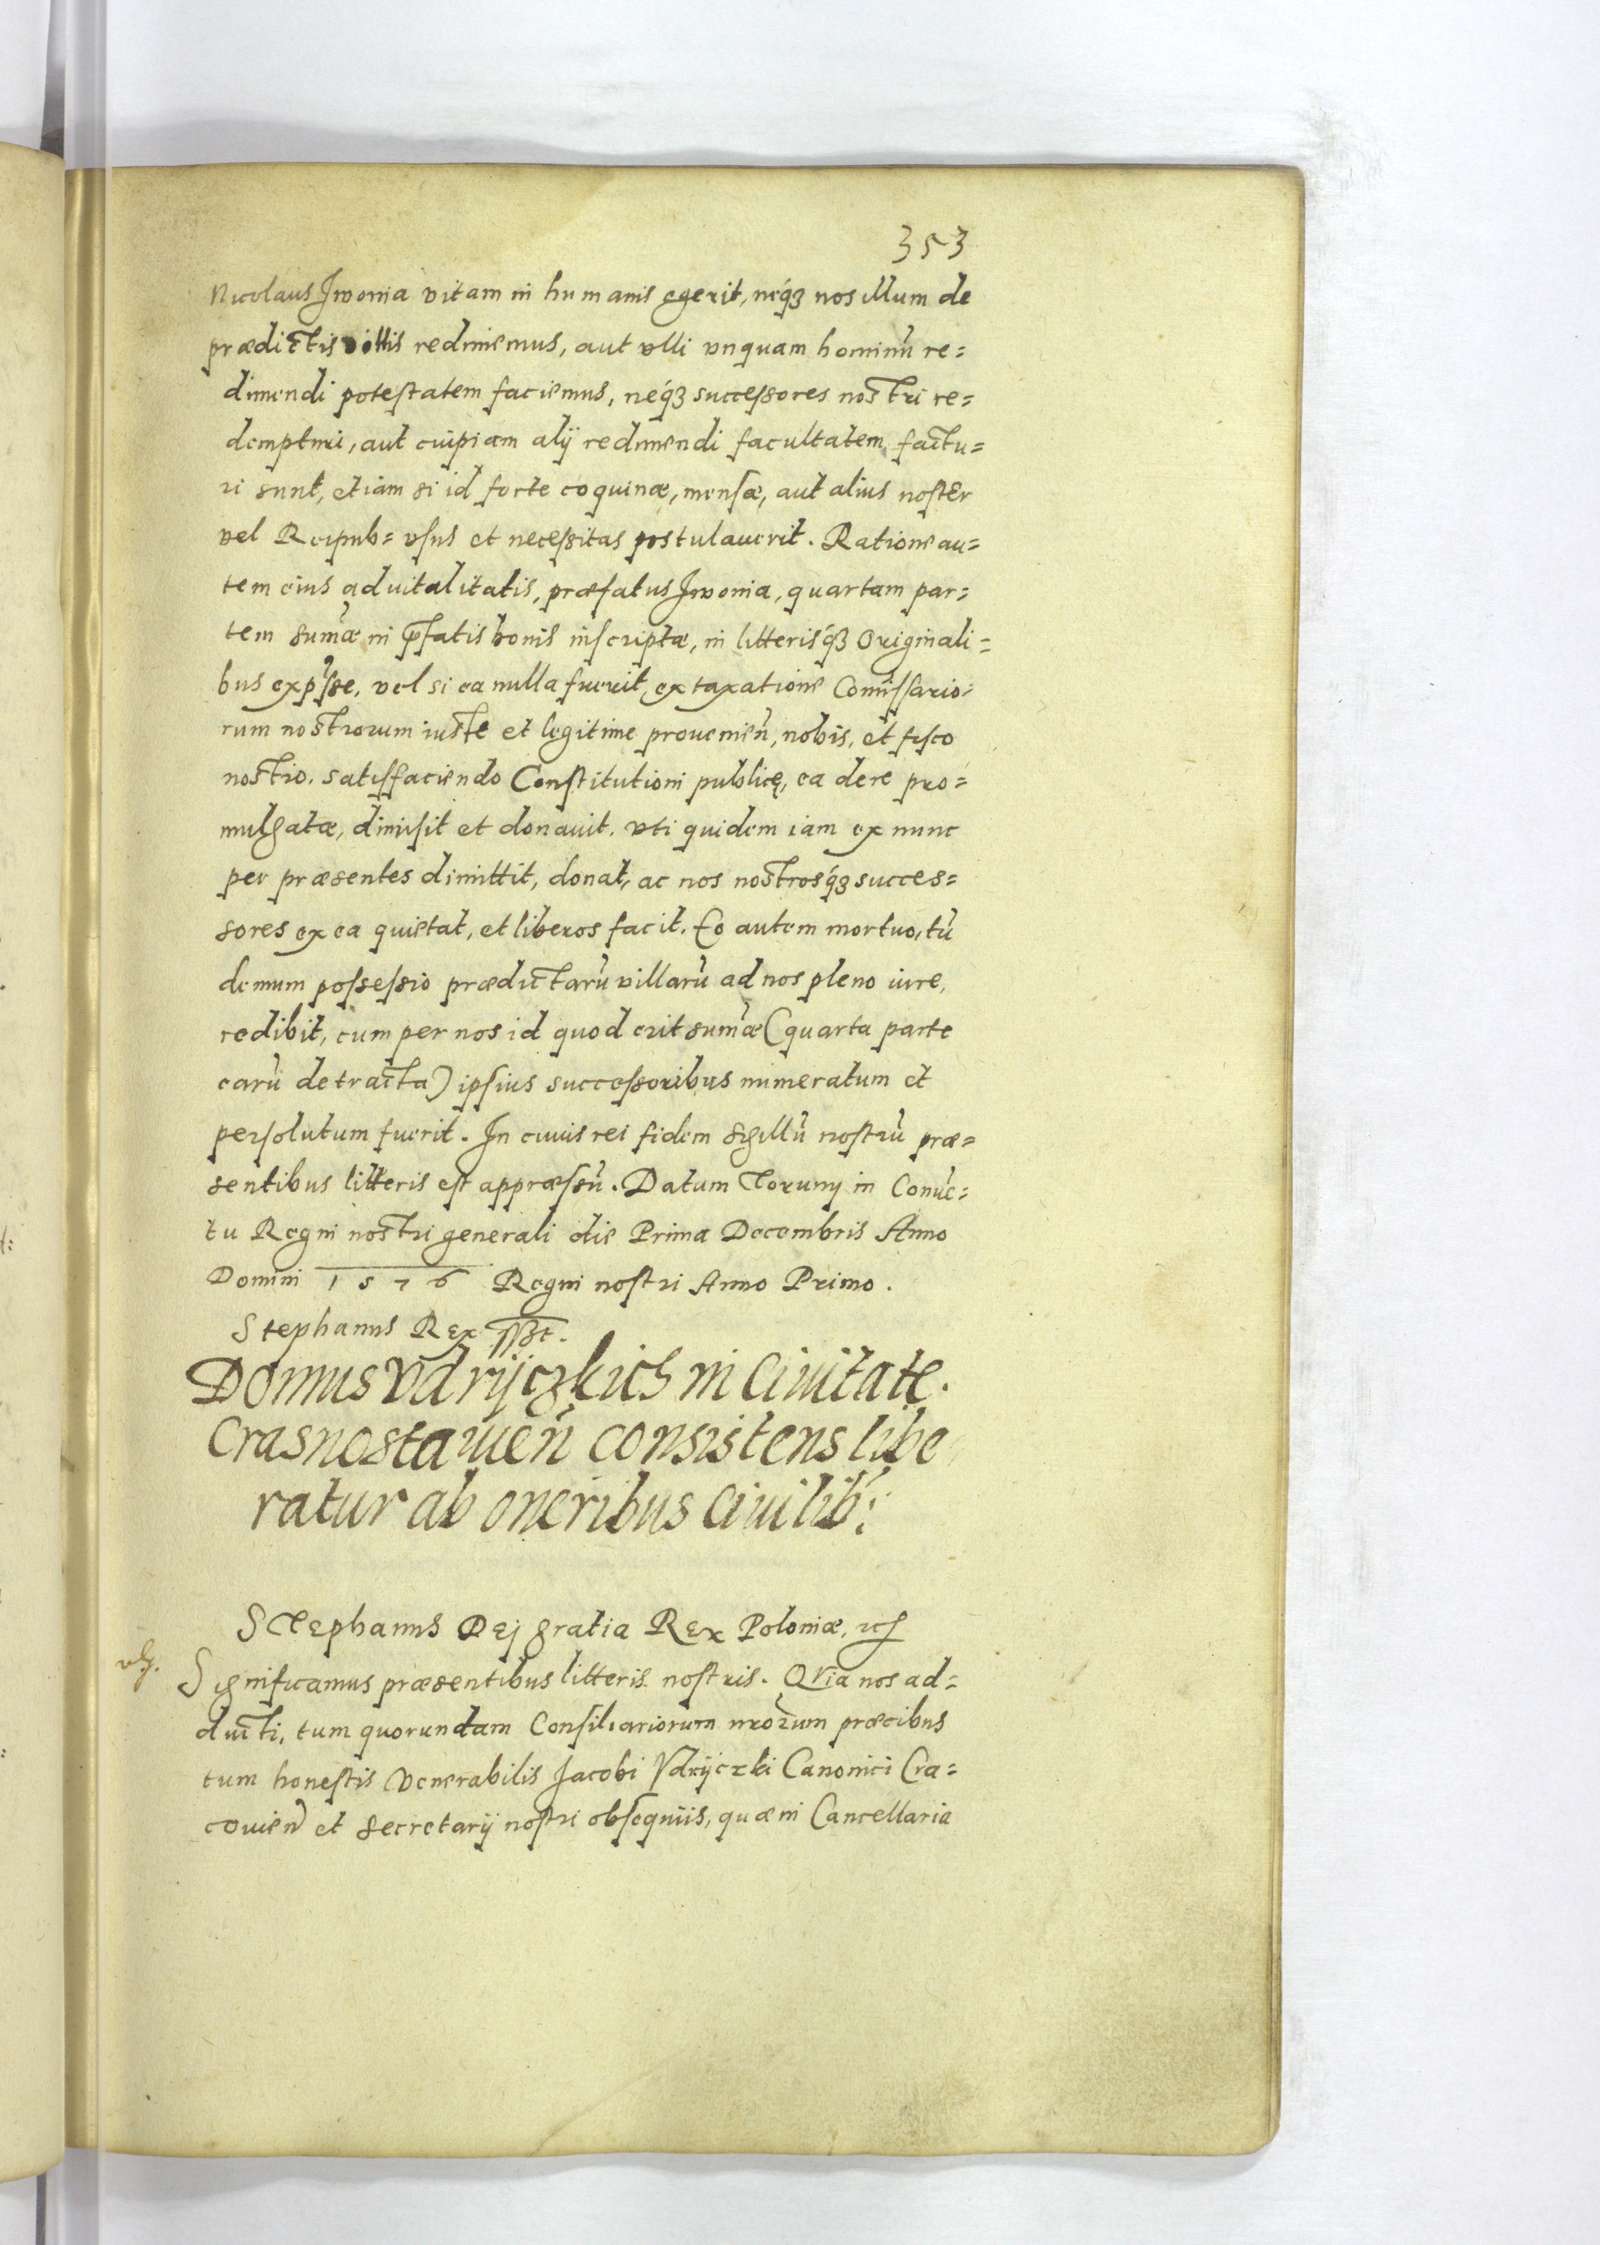 353
Nicolaus Jwonia vitam in humanis egerit, neqз nos illum de
prædictis villis redimemus, aut vlli vnquam hominũ re=
dimendi potestatem faciemus, neqз successores nostri re=
dempturi, aut cuipiam alij redimendi facultatem factu=
ri sunt, etiam si id forte coquinæ, mensæ, aut alius noster
vel Reipub= vsus et necessitas postulauerit. Ratione au=
tem eius aduitalitatis, præfatus Jwonia, quartam par=
tem sum̃æ in p̃fatis bonis inscriptæ, in litterisqз originali=
bus exp̃sse, vel si ea nulla fuerit, ex taxatione Com̃issario=
rum nostrorum iuste et legitime prouenieñ, nobis, et fisco
nostro, satisfaciendo Constitutioni publicę, ea de re pro=
mulgatæ, dimisit et donauit. vti quidem iam ex nunc
per præsentes dimittit, donat, ac nos nostrosqз succes=
sores ex ea quietat, et liberos facit. Eo autem mortuo, tũ
demum possessio prædictarũ villarũ ad nos pleno iure,
redibit, cum per nos id quod erit sum̃æ (quarta parte
earũ detracta) ipsius successoribus numeratum et
persolutum fuerit. In cuius rei fidem sigillũ nostrũ præ=
sentibus litteris est appræssũ. Datum Toruny in Conuẽ=
tu Regni nostri generali die Prima Decembris Anno
Domini 1576 Regni nostri Anno Primo.
Stephanus Rex sst.
Domus Vdrijczkich in Ciuitate
Crasnostauieñ consistens libe
ratur ab oneribus Ciuilib:
Stephanus Dej gratia Rex Poloniæ, etc
Significamus præsentibus litteris nostris. Qvia nos ad=
ducti, tum quorundam Consiliariorum nrõrum præcibus
tum honestis Venerabilis Jacobi Vdrijczki Canonici Cra=
couieñ et secretarij nostri obsequiis, quæ in Cancellaria